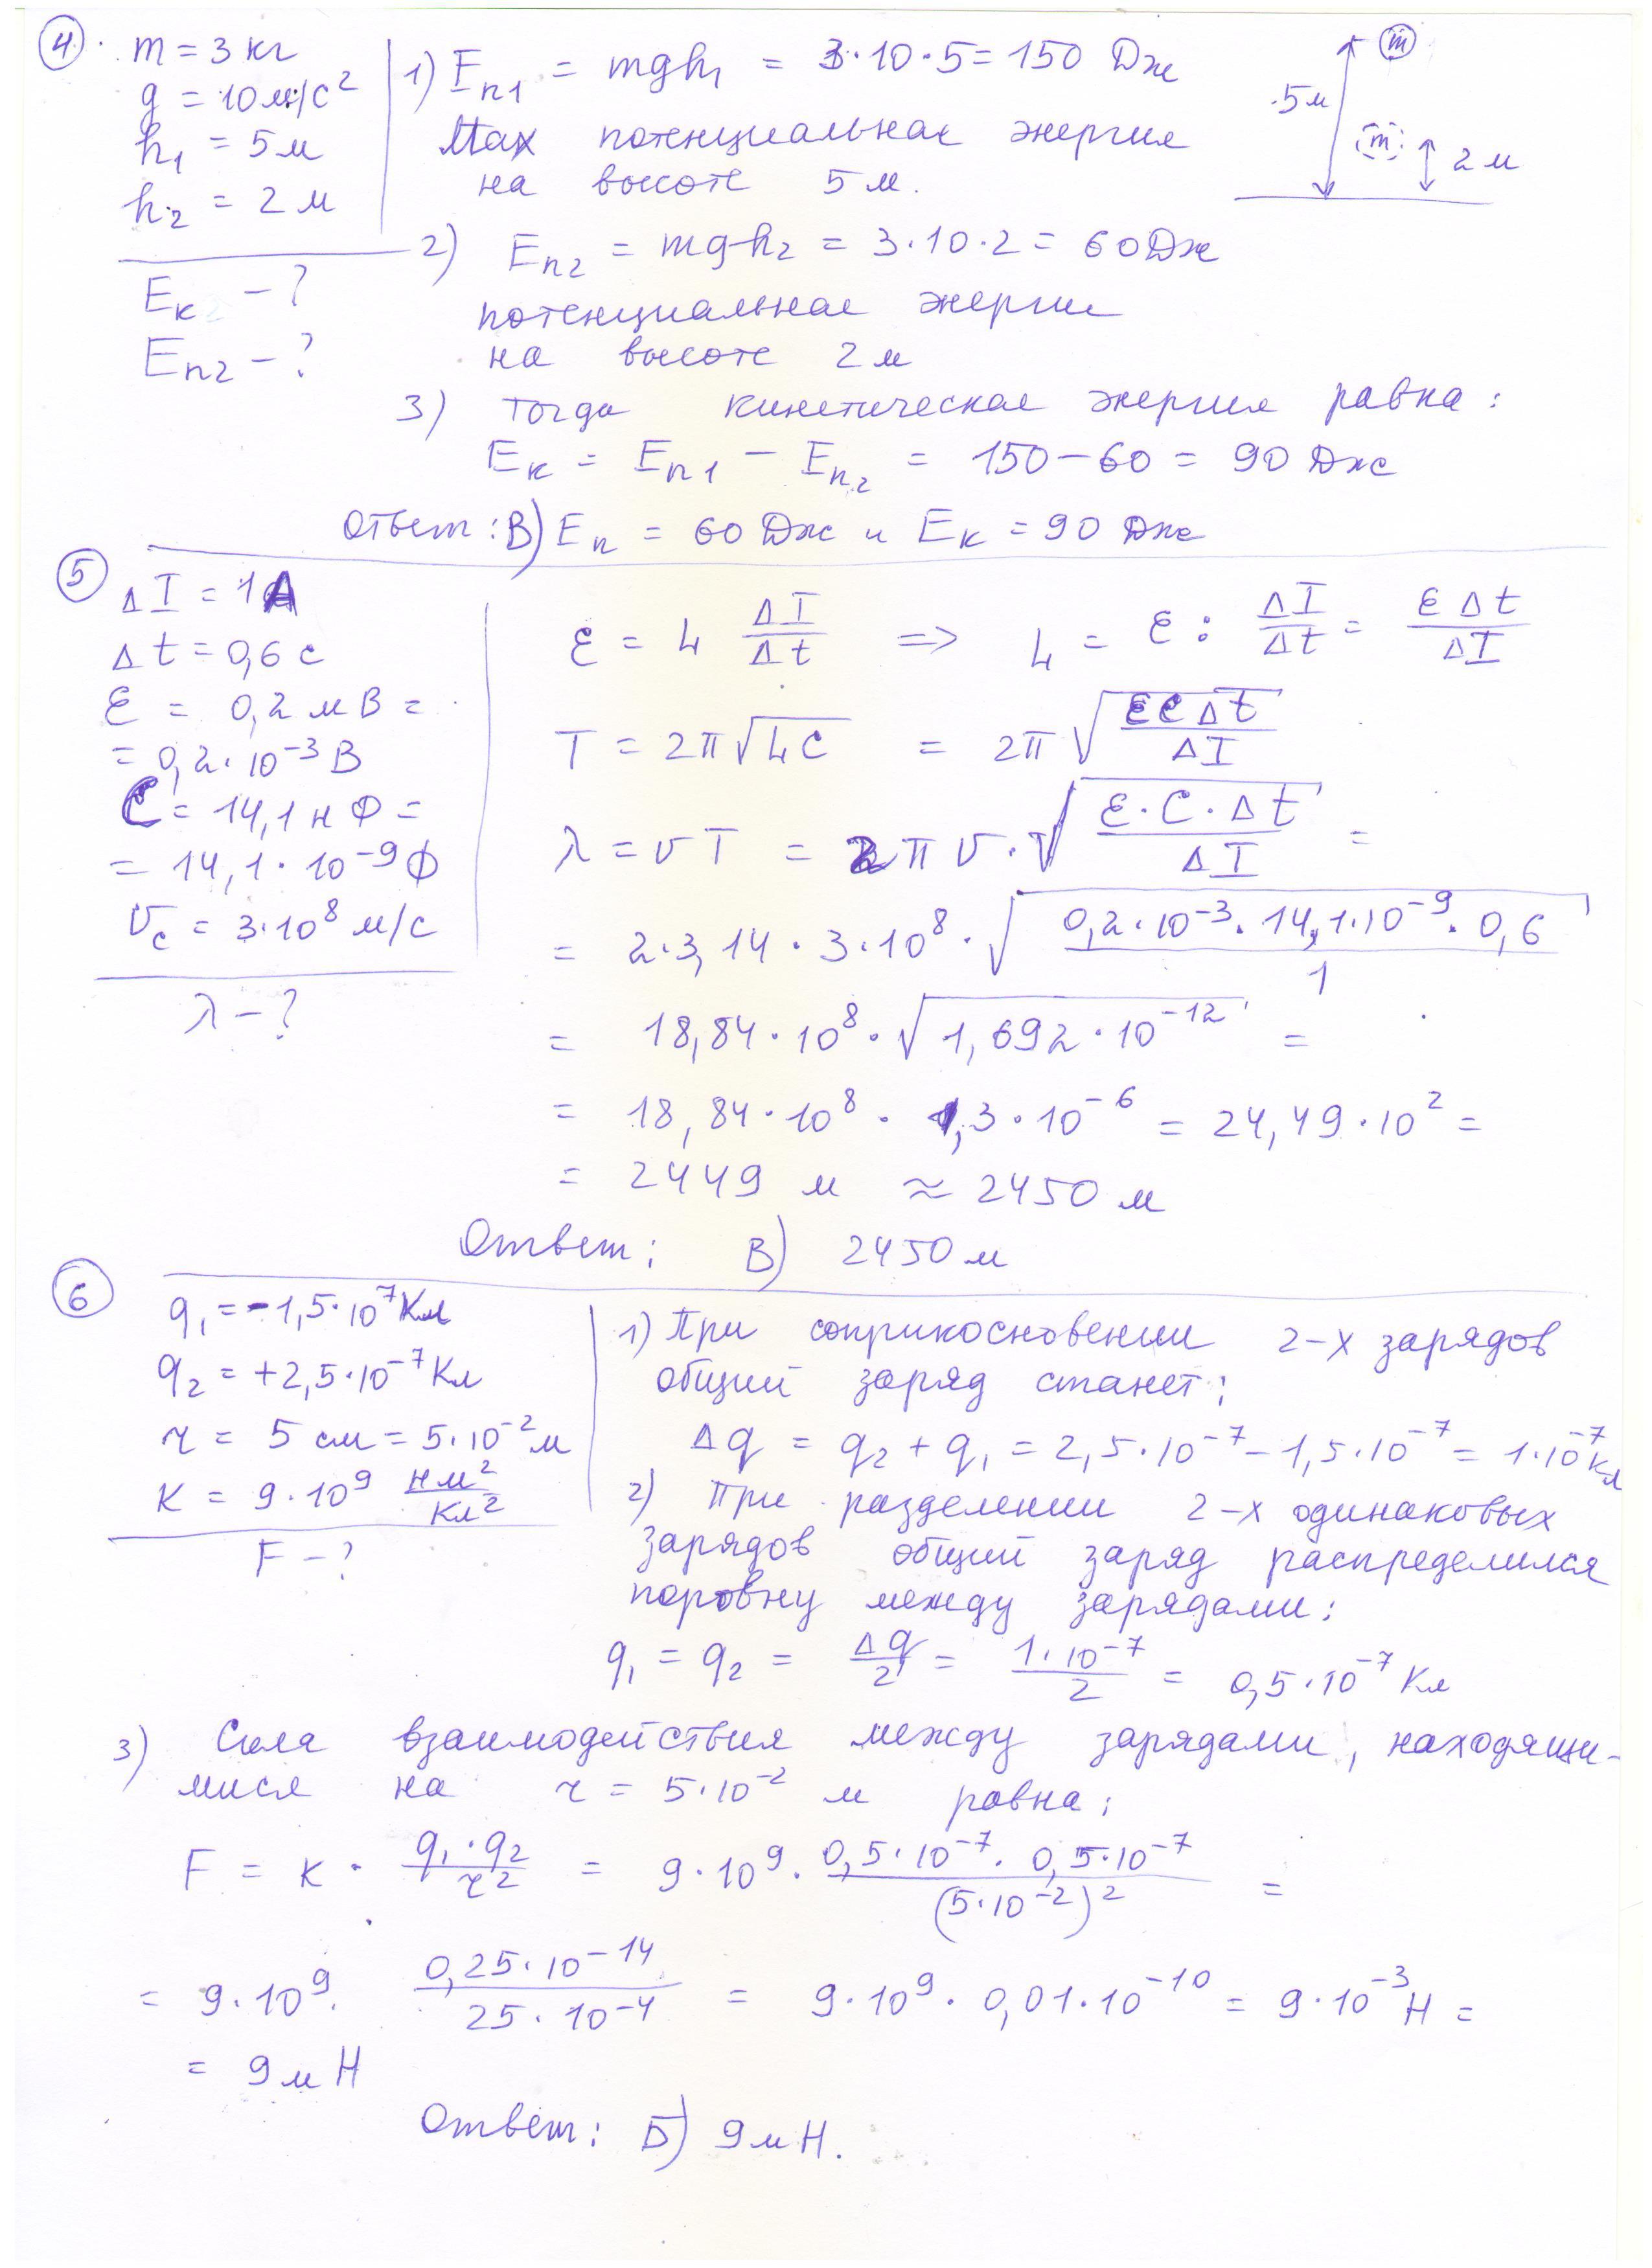 4. m = 3 кг
g = 10 м/с²
h₁ = 5 м
h₂ = 2 м
Eк – ?
Eп2 – ?
1) Eп1 = mgh₁ = 3·10·5 = 150 Дж
Max потенциальная энергия
на высоте 5 м.
m
5м
m
2 м
2) Eп2 = mgh₂ = 3·10·2 = 60 Дж
потенциальная энергия
на высоте 2 м
3) Тогда кинетическая энергия равна:
Eк = Eп1 – Eп2 = 150 – 60 = 90 Дж
Ответ: В) Eп = 60 Дж и Eк = 90 Дж
5
ΔI = 1А
Δt = 0,6 с
ℰ = 0,2 мВ =
= 0,2·10⁻³ В
C = 14,1 нФ =
= 14,1·10⁻⁹ Ф
υc = 3·10⁸ м/с
λ – ?
ℰ = L ΔI/Δt => L = ℰ : ΔI/Δt = ℰΔt/ΔI
T = 2π√LC = 2π√(ℰCΔt/ΔI)
λ = υT = 2πυ·√(ℰ·C·Δt/ΔI) =
= 2·3,14·3·10⁸·√(0,2·10⁻³·14,1·10⁻⁹·0,6/1)
= 18,84·10⁸·√(1,692·10⁻¹²) =
= 18,84·10⁸·1,3·10⁻⁶ = 24,49·10² =
= 2449 м ≈ 2450 м
Ответ: В) 2450 м
6
q₁ = –1,5·10⁷ Кл
q₂ = +2,5·10⁻⁷ Кл
r = 5 см = 5·10⁻² м
K = 9·10⁹ нм²/Кл²
F – ?
1) При соприкосновении 2-х зарядов
общий заряд станет:
Δq = q₂ + q₁ = 2,5·10⁻⁷ – 1,5·10⁻⁷ = 1·10⁻⁷ Кл
2) При разделении 2-х одинаковых
зарядов общий заряд распределился
поровну между зарядами:
q₁ = q₂ = Δq/2 = 1·10⁻⁷/2 = 0,5·10⁻⁷ Кл
3) Сила взаимодействия между зарядами, находящи-
мися на r = 5·10⁻² м равна:
F = K · q₁·q₂/r² = 9·10⁹ · 0,5·10⁻⁷·0,5·10⁻⁷/(5·10⁻²)² =
= 9·10⁹· 0,25·10⁻¹⁴/25·10⁻⁴ = 9·10⁹·0,01·10⁻¹⁰ = 9·10⁻³ Н =
= 9 мН
Ответ: Б) 9 мН.